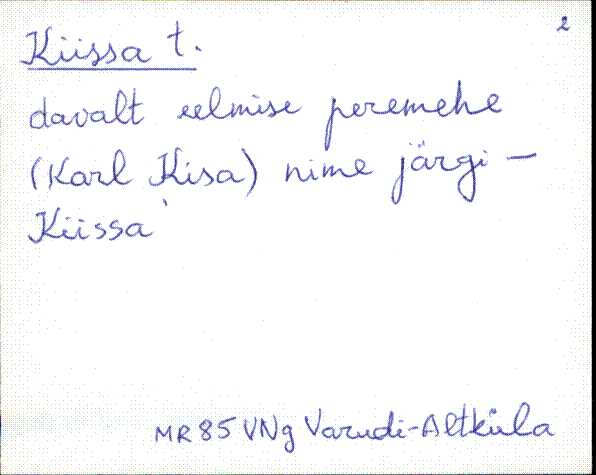 2
Kiissa t.
davalt eelmise peremehe
(Karl Kisa) nime järgi –
Kiissa
MR 85 VNg Varudi-Altküla